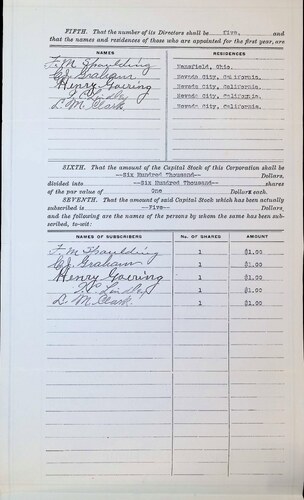 FIFTH. That the number of its Directors shall be five, and
that the names and residences of those who are appointed for the first year, are
NAMES RESIDENCES
F. M. Spaulding Mansfield, Ohio.
C. J. Graham Nevada City, California.
Henry Goering Nevada City, California.
Nevada City, California.
D. M. Clark Nevada City, California.
SIXTH. That the amount of the Capital Stock of this Corporation shall be
--Six Hundred Thousand-- Dollars,
divided into --Six Hundred Thousand-- shares
of the par value of One Dollars each.
SEVENTH. That the amount of said Capital Stock which has been actually
subscribed is --Five-- Dollars,
and the following are the names of the persons by whom the same has been sub-
scribed, to-wit:
NAMES OF SUBSCRIBERS No. OF SHARES AMOUNT
F M Spaulding 1 $1.00
C J Graham 1 $1.00
Henry Goering 1 $1.00
Lindley 1 $1.00
D. M. Clark. 1 $1.00